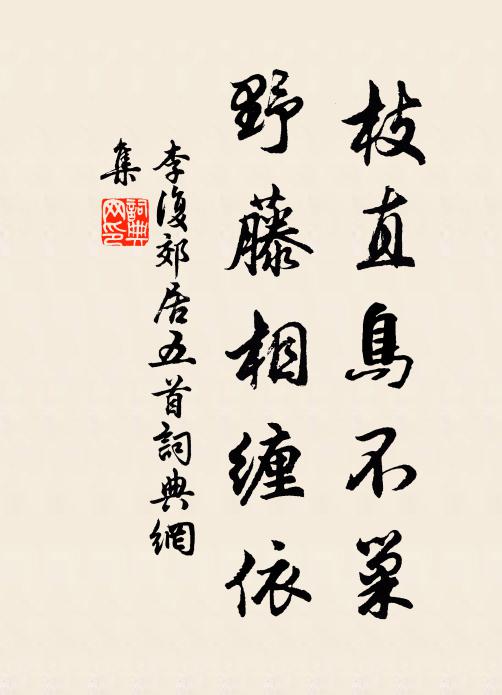 枝直鳥不巢
野藤相纏依
李復郊居五首詞典網
集
詞典
网印